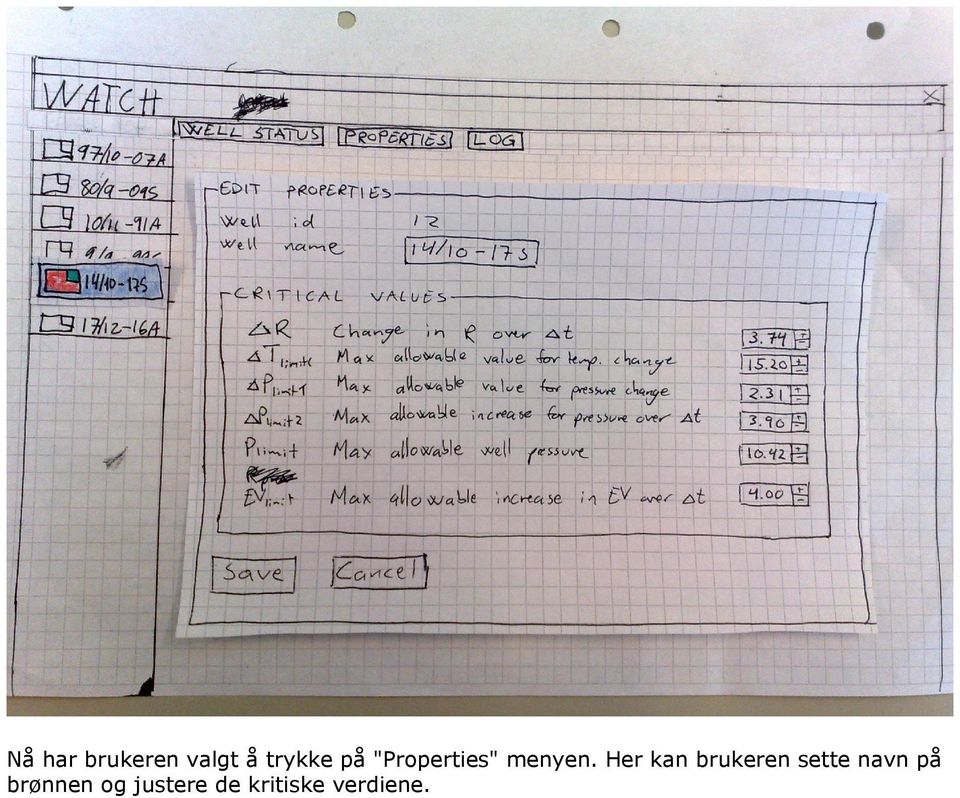 WATCH
X
WELL STATUS PROPERTIES LOG
97/10-07A
80/9-09S
10/11-91A
14/10-17S
17/12-16A
EDIT PROPERTIES
Well id 12
Well name 14/10-17S
CRITICAL VALUES
ΔR Change in R over Δt 3.74 + -
ΔTlimit1 Max allowable value for temp. change 15.20 + -
ΔPlimit1 Max allowable value for pressure change 2.31 + -
ΔPlimit2 Max allowable increase for pressure over Δt 3.90 + -
Plimit Max allowable well pessure 10.42 + -
EVlimit Max allowable increase in EV over Δt 4.00 + -
Save Cancel
Nå har brukeren valgt å trykke på "Properties" menyen. Her kan brukeren sette navn på
brønnen og justere de kritiske verdiene.